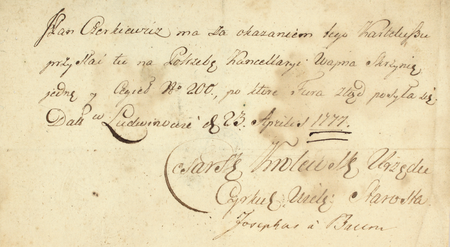 JPan Cierkiewicz ma Za okazaniem tego Karteluszu
przysłać tu na Potrzebę Kancellaryi Wapna Skrzynię
jednę y Cegieł No 200, po które Fura ztąd posyła się
Datt w Ludwinowie d 23 Aprilis 1777.
Cesarsko Krolewski Urzędu
Cyrkuł: Wielic: Starosta
Josephus à Baum